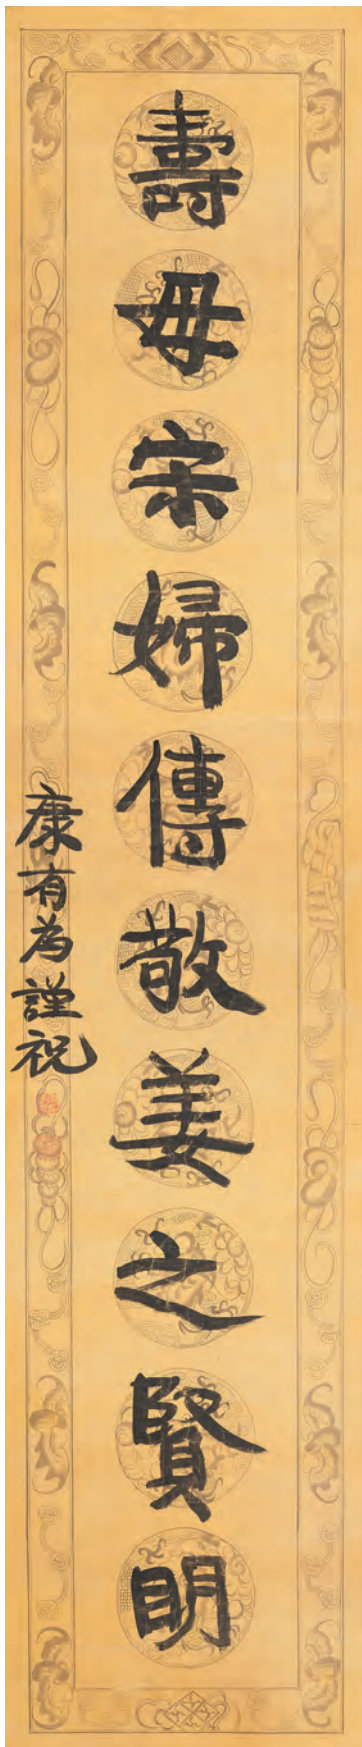 壽母宗婦傳敬姜之賢明
康有為謹祝